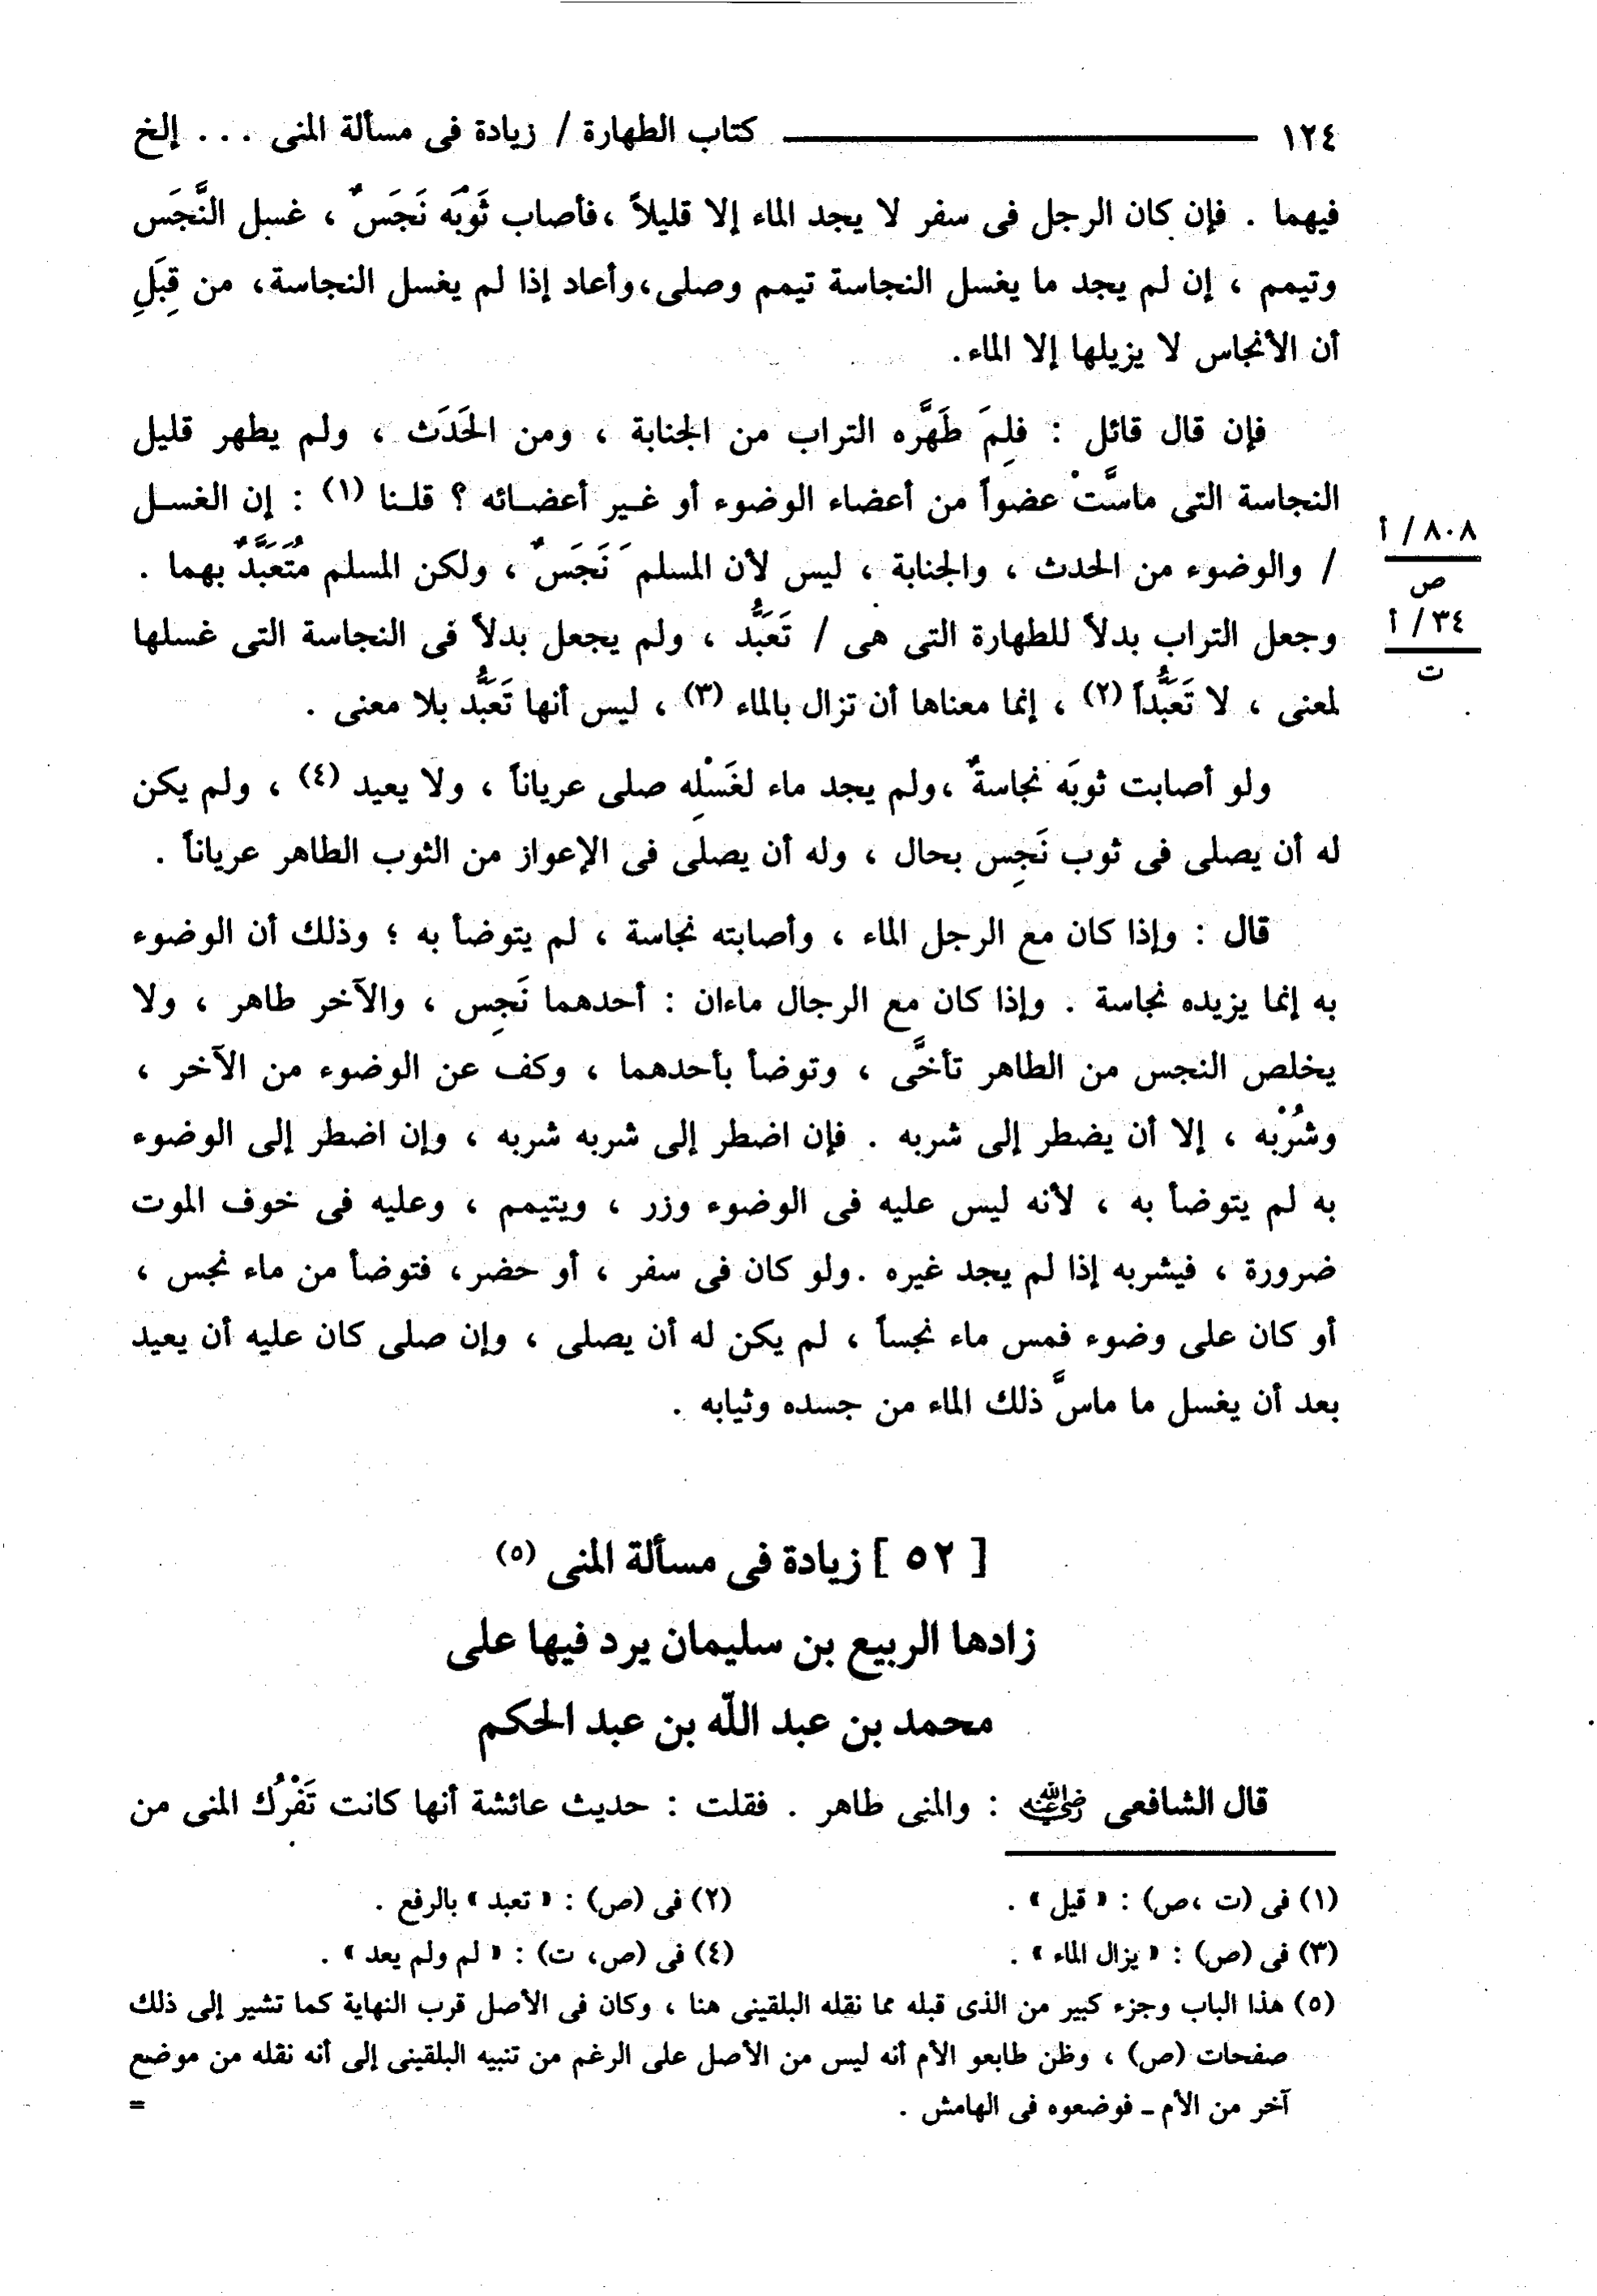 ١٢٤ كتاب الطهارة / زيادة فى مسألة المنى . . . إلخ
فيهما . فإن كان الرجل فى سفر لا يجد الماء إلا قليلاً ،فأصاب ثَوْبَه نَجَسٌ ، غسل النَّجَس
وتيمم ، إن لم يجد ما يغسل النجاسة تيمم وصلى،وأعاد إذا لم يغسل النجاسة، من قِبَلِ
أن الأنجاس لا يزيلها إلا الماء.
فإن قال قائل : فلِمَ طَهَّره التراب من الجنابة ، ومن الحَدَث ، ولم يطهر قليل
النجاسة التى ماسَّتْ عضواً من أعضاء الوضوء أو غـير أعضـائه ؟ قلـنا (١) : إن الغسـل
٨٠٨ / أ
ص
/ والوضوء من الحدث ، والجنابة ، ليس لأن المسلم نَجَسٌ ، ولكن المسلم مُتَعَبَّدٌ بهما .
٣٤ / أ
ت
وجعل التراب بدلاً للطهارة التى هى / تَعَبُّد ، ولم يجعل بدلاً فى النجاسة التى غسلها
لمعنى ، لا تَعَبُّداً (٢) ، إنما معناها أن تزال بالماء (٣) ، ليس أنها تَعَبُّد بلا معنى .
ولو أصابت ثوبَه نجاسةٌ ،ولم يجد ماء لغَسْلِه صلى عرياناً ، ولا يعيد (٤) ، ولم يكن
له أن يصلى فى ثوب نَجِس بحال ، وله أن يصلى فى الإعواز من الثوب الطاهر عرياناً .
قال : وإذا كان مع الرجل الماء ، وأصابته نجاسة ، لم يتوضأ به ؛ وذلك أن الوضوء
به إنما يزيده نجاسة . وإذا كان مع الرجال ماءان : أحدهما نَجِس ، والآخر طاهر ، ولا
يخلص النجس من الطاهر تأخَّى ، وتوضأ بأحدهما ، وكف عن الوضوء من الآخر ،
وشُرْبه ، إلا أن يضطر إلى شربه . فإن اضطر إلى شربه شربه ، وإن اضطر إلى الوضوء
به لم يتوضأ به ، لأنه ليس عليه فى الوضوء وزر ، ويتيمم ، وعليه فى خوف الموت
ضرورة ، فيشربه إذا لم يجد غيره .ولو كان فى سفر ، أو حضر، فتوضأ من ماء نجس ،
أو كان على وضوء فمس ماء نجساً ، لم يكن له أن يصلى ، وإن صلى كان عليه أن يعيد
بعد أن يغسل ما ماسَّ ذلك الماء من جسده وثيابه .
[ ٥٢ ] زيادة فى مسألة المنى (٥)
زادها الربيع بن سليمان يرد فيها على
محمد بن عبد اللّه بن عبد الحكم
قال الشافعى رضي الله عنه : والمنى طاهر . فقلت : حديث عائشة أنها كانت تَفْرُك المنى من
(١) فى (ت ،ص) : « قيل » . (٢) فى (ص) : « تعبد » بالرفع .
(٣) فى (ص) : « يزال الماء » . (٤) فى (ص، ت) : « لم ولم يعد » .
(٥) هذا الباب وجزء كبير من الذى قبله مما نقله البلقينى هنا ، وكان فى الأصل قرب النهاية كما تشير إلى ذلك
صفحات (ص) ، وظن طابعو الأم أنه ليس من الأصل على الرغم من تنبيه البلقينى إلى أنه نقله من موضع
آخر من الأم ــ فوضعوه فى الهامش . =